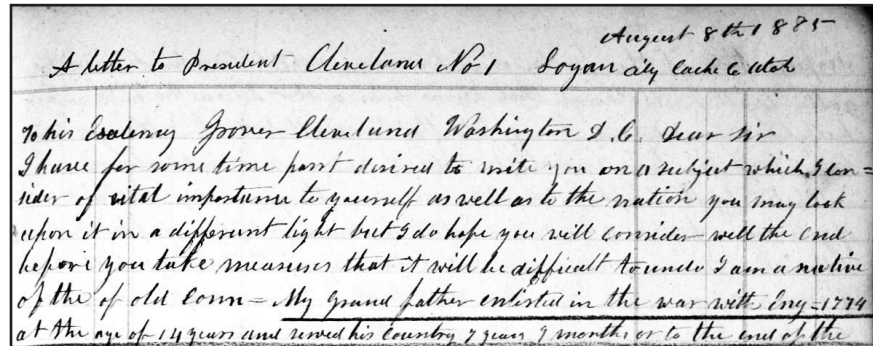 August 8th 1885
A letter to President Cleveland No 1 Logan City Cache Co Utah
To his Exalency Grover Cleveland Washington D.C. Dear Sir
I have for some time past desired to write you on a subject which I con=
sider of vital importance to yourself as well as to the nation you may look
upon it in a different light but I do hope you will consider well the end
before you take measures that it will be difficult to undo I am a native
of the of old Conn= My Grand father enlisted in the war with Eng=1774
at the age of 14 years and served his country 7 years 9 months or to the end of the